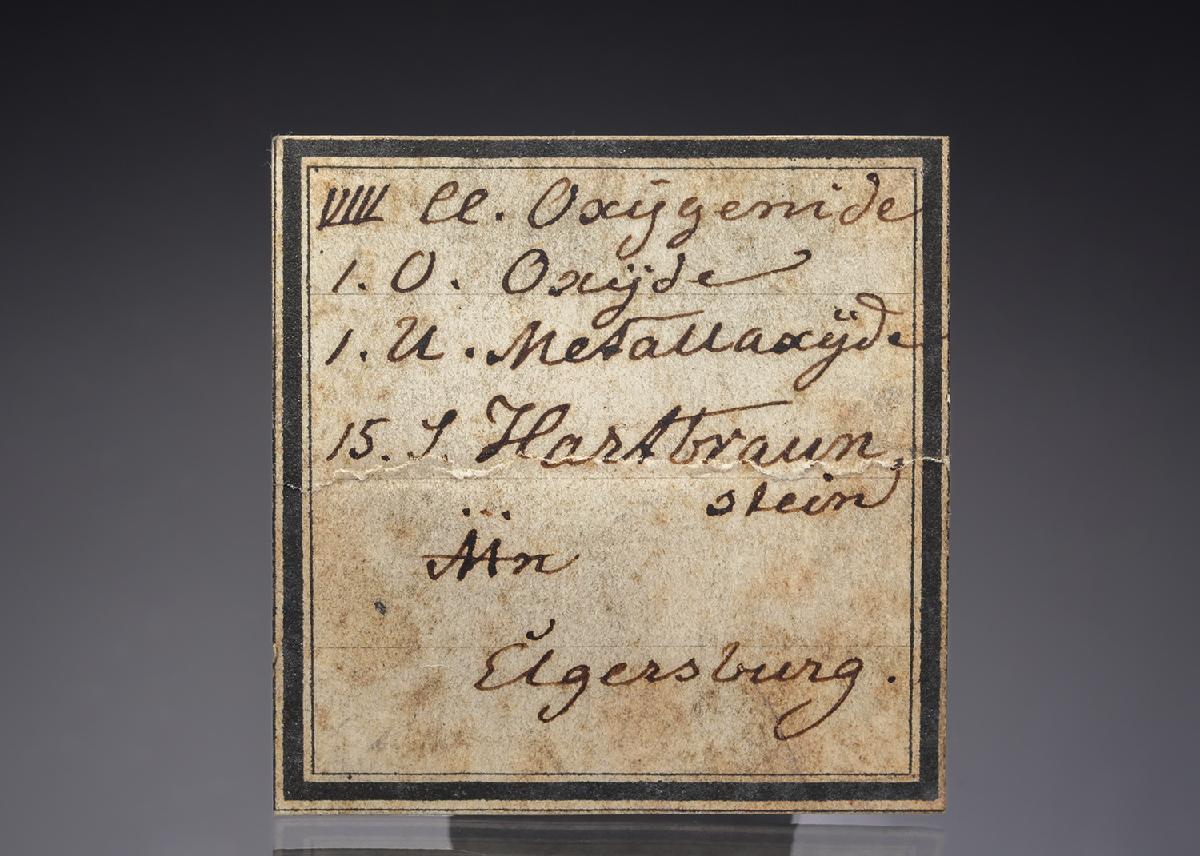 VIII Cl. Oxÿgenide
1. O. Oxÿde
1. U. Metallaxÿde
15. S. Hartbraun
stein
...
Mn
Elgersburg.